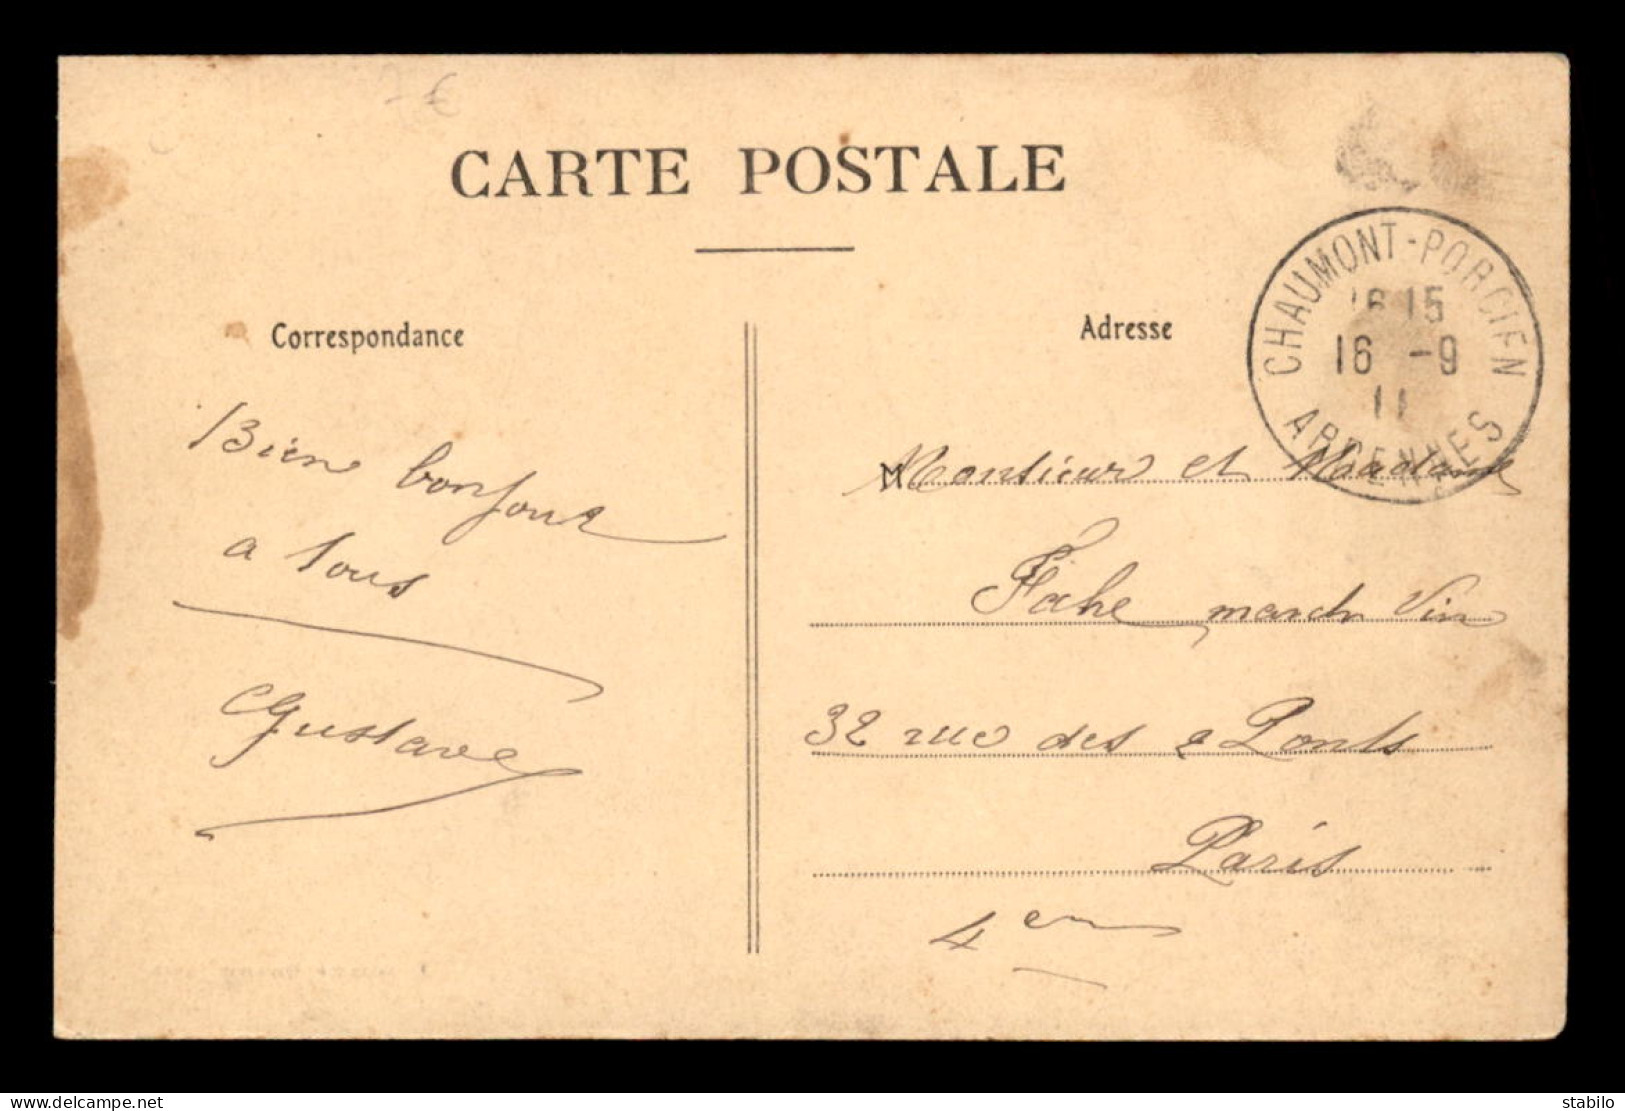 7 €
CARTE POSTALE
Correspondance
Adresse
CHAUMONT-PORCIEN
16 15
16 -9
11
ARDENNES
Bien bonjour
a tous
Gustave
Monsieur et Madame
march Vin
32 rue des 2 Ponts
Paris
4em
delcampe.net
stabilo